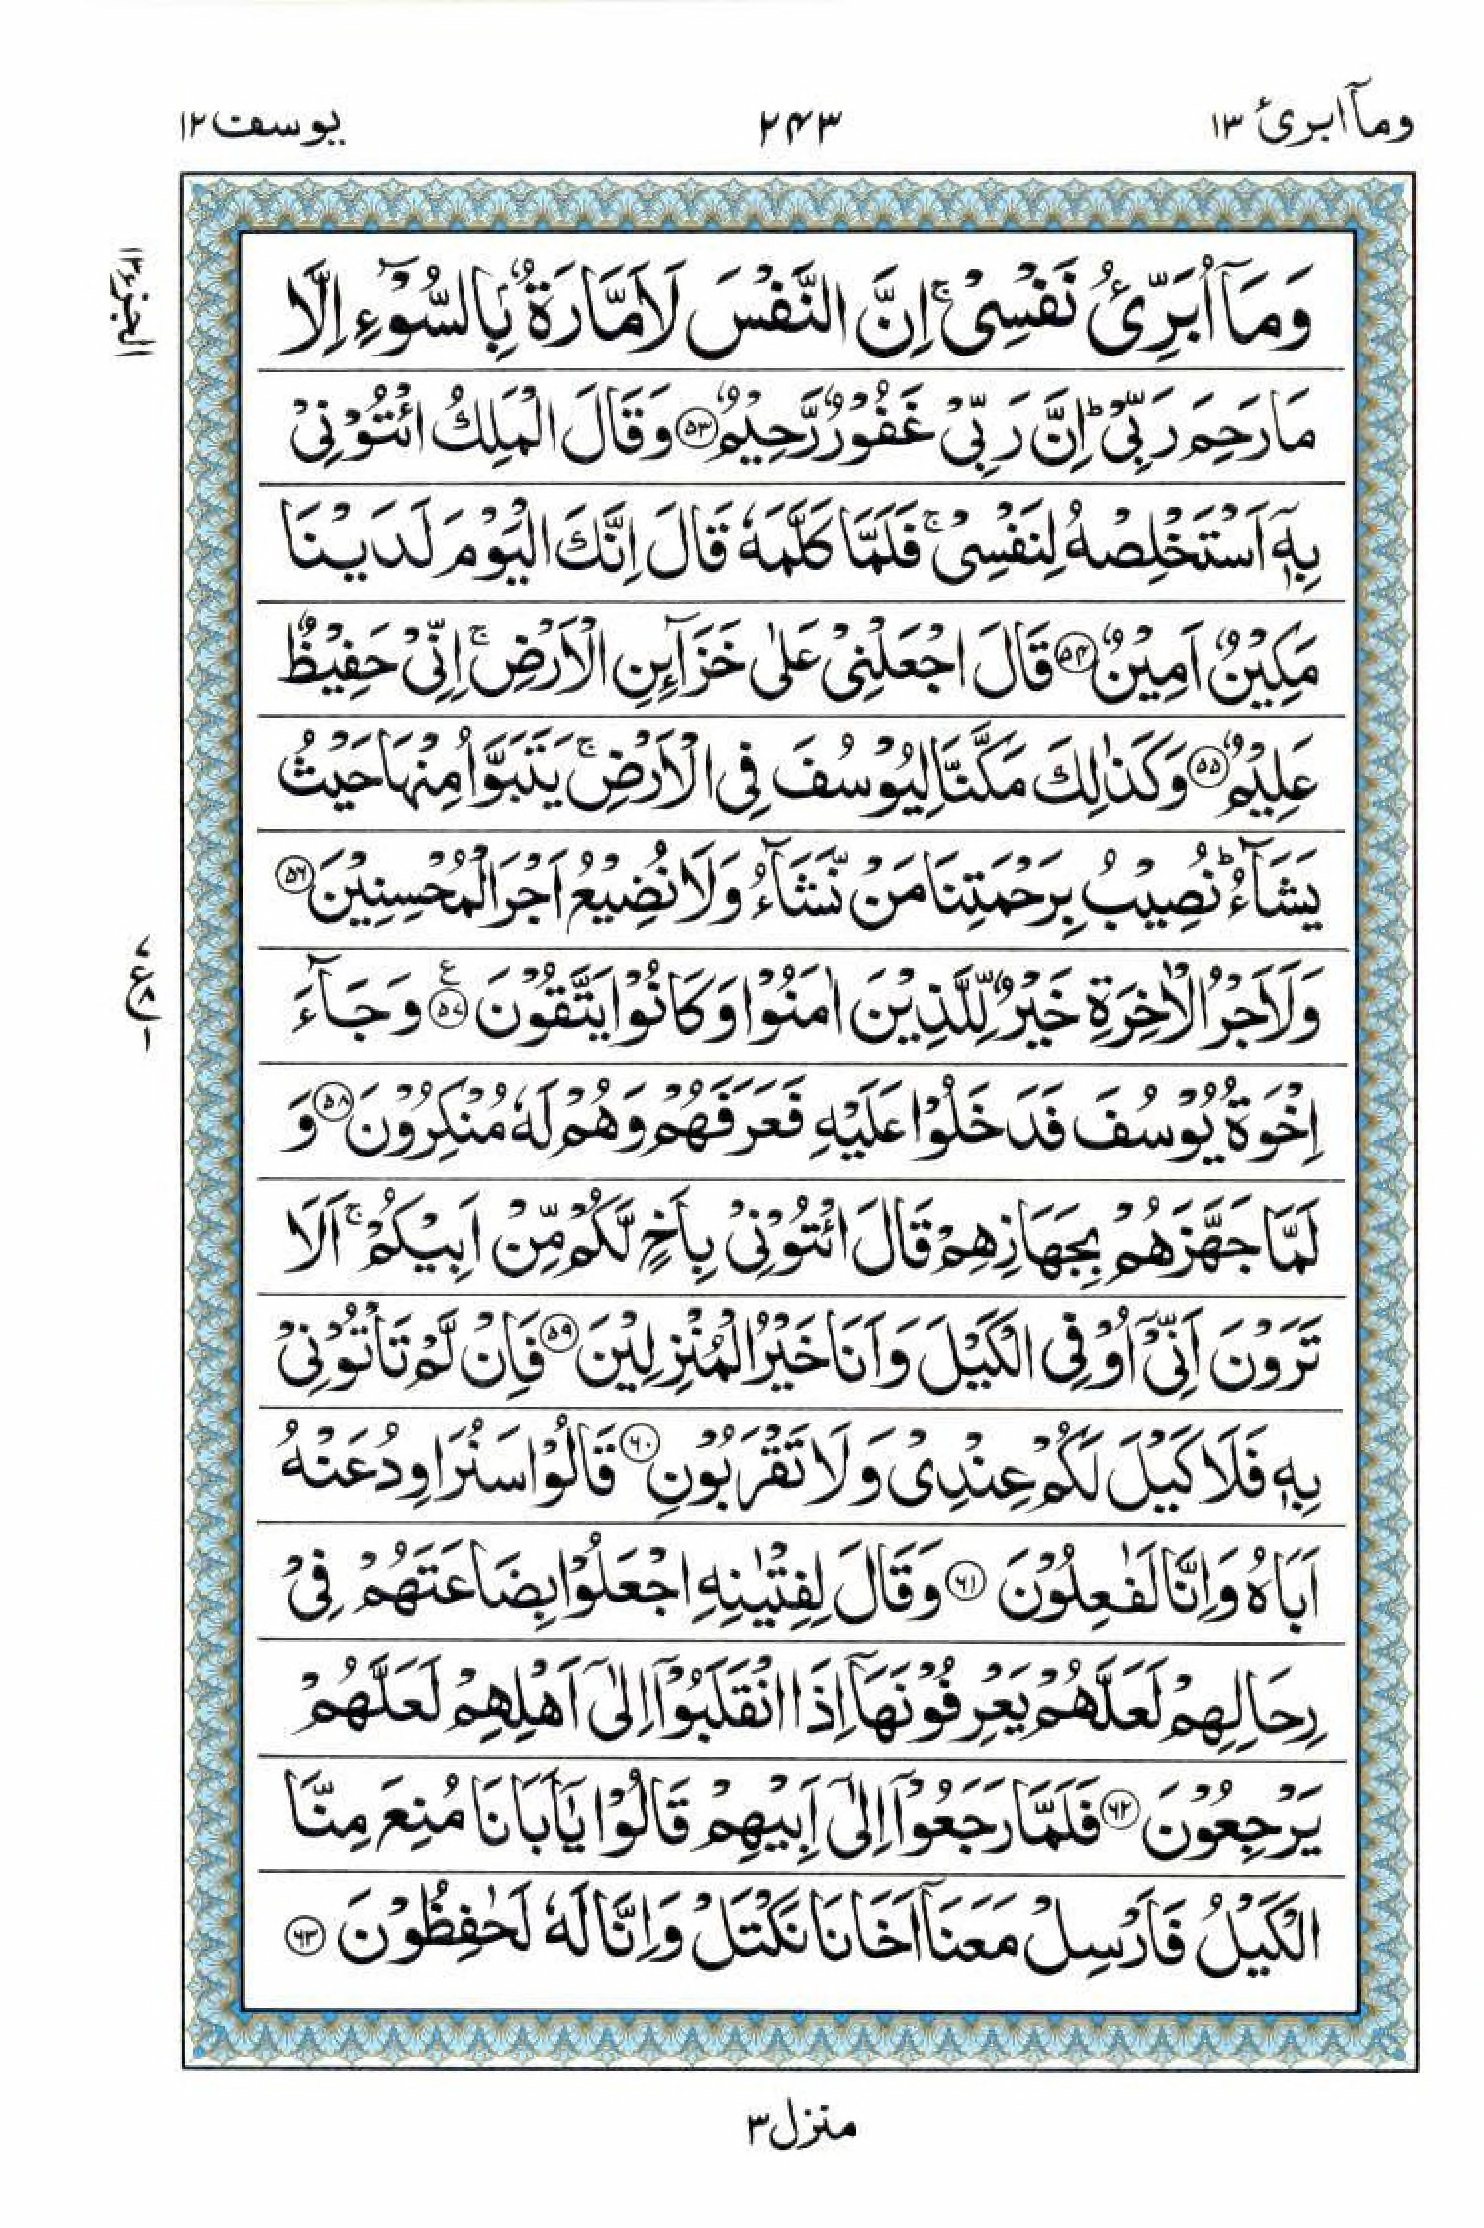 وماۤ ابرئ ١٣
٢٤٣
يوسف ١٢
وَمَاۤ اُبَرِّئُ نَفْسِيْ ۚ اِنَّ النَّفْسَ لَاَمَّارَةٌۢ بِالسُّوْٓءِ اِلَّا
مَا رَحِمَ رَبِّيْ ؕ اِنَّ رَبِّيْ غَفُوْرٌ رَّحِيْمٌ ﴿۵۳﴾ وَقَالَ الْمَلِكُ ائْتُوْنِيْ
بِهٖۤ اَسْتَخْلِصْهُ لِنَفْسِيْ ۚ فَلَمَّا كَلَّمَهٗ قَالَ اِنَّكَ الْيَوْمَ لَدَيْنَا
مَكِيْنٌ اَمِيْنٌ ﴿۵۴﴾ قَالَ اجْعَلْنِيْ عَلٰى خَزَآئِنِ الْاَرْضِ ۚ اِنِّيْ حَفِيْظٌ
عَلِيْمٌ ﴿۵۵﴾ وَكَذٰلِكَ مَكَّنَّا لِيُوْسُفَ فِي الْاَرْضِ ۚ يَتَبَوَّاُ مِنْهَا حَيْثُ
يَشَآءُ ؕ نُصِيْبُ بِرَحْمَتِنَا مَنْ نَّشَآءُ وَلَا نُضِيْعُ اَجْرَ الْمُحْسِنِيْنَ ﴿۵۶﴾
وَلَاَجْرُ الْاٰخِرَةِ خَيْرٌ لِّلَّذِيْنَ اٰمَنُوْا وَكَانُوْا يَتَّقُوْنَ ﴿۵۷﴾ ع وَجَآءَ
اِخْوَةُ يُوْسُفَ فَدَخَلُوْا عَلَيْهِ فَعَرَفَهُمْ وَهُمْ لَهٗ مُنْكِرُوْنَ ﴿۵۸﴾ وَ
لَمَّا جَهَّزَهُمْ بِجَهَازِهِمْ قَالَ ائْتُوْنِيْ بِاَخٍ لَّكُمْ مِّنْ اَبِيْكُمْ ۚ اَلَا
تَرَوْنَ اَنِّيْۤ اُوْفِي الْكَيْلَ وَاَنَا خَيْرُ الْمُنْزِلِيْنَ ﴿۵۹﴾ فَاِنْ لَّمْ تَاْتُوْنِيْ
بِهٖ فَلَا كَيْلَ لَكُمْ عِنْدِيْ وَلَا تَقْرَبُوْنِ ﴿۶۰﴾ قَالُوْا سَنُرَاوِدُ عَنْهُ
اَبَاهُ وَاِنَّا لَفٰعِلُوْنَ ﴿۶۱﴾ وَقَالَ لِفِتْيٰنِهِ اجْعَلُوْا بِضَاعَتَهُمْ فِيْ
رِحَالِهِمْ لَعَلَّهُمْ يَعْرِفُوْنَهَاۤ اِذَا انْقَلَبُوْۤا اِلٰۤى اَهْلِهِمْ لَعَلَّهُمْ
يَرْجِعُوْنَ ﴿۶۲﴾ فَلَمَّا رَجَعُوْۤا اِلٰۤى اَبِيْهِمْ قَالُوْا يٰۤاَبَانَا مُنِعَ مِنَّا
الْكَيْلُ فَاَرْسِلْ مَعَنَاۤ اَخَانَا نَكْتَلْ وَاِنَّا لَهٗ لَحٰفِظُوْنَ ﴿۶۳﴾
الجزء ١٣
٧
ع ٨
١
منزل ٣